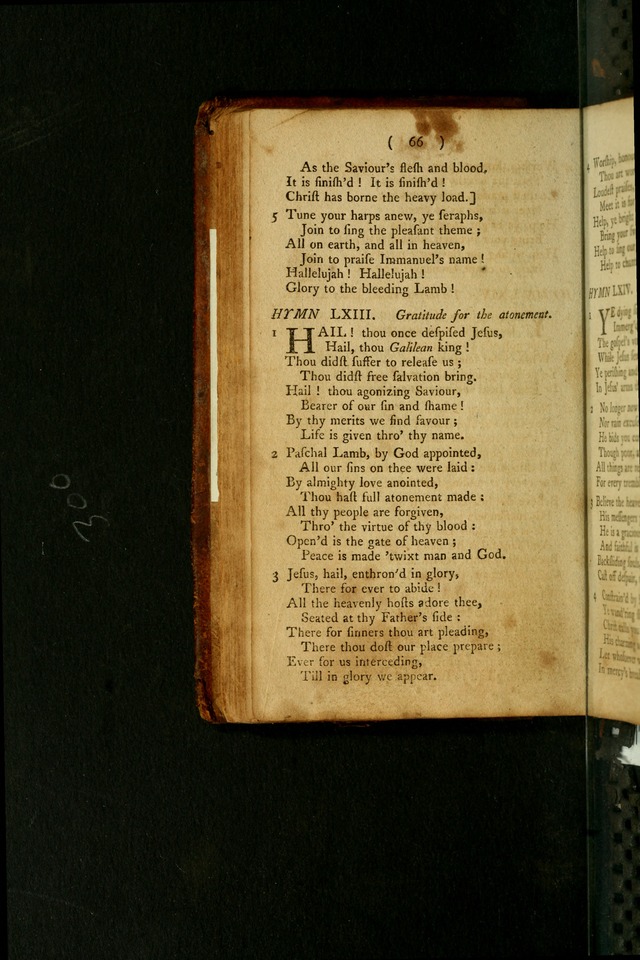 ( 66 )
As the Saviour's fleſh and blood.
It is finiſh'd ! It is finiſh'd !
Chriſt has borne the heavy load.]
5 Tune your harps anew, ye ſeraphs,
Join to ſing the pleaſant theme ;
All on earth, and all in heaven,
Join to praiſe Immanuel's name !
Hallelujah ! Hallelujah !
Glory to the bleeding Lamb !
HYMN LXIII. Gratitude for the atonement.
1 HAIL ! thou once deſpiſed Jeſus,
Hail, thou Galilean king !
Thou didſt ſuffer to releaſe us ;
Thou didſt free ſalvation bring.
Hail ! thou agonizing Saviour,
Bearer of our ſin and ſhame !
By thy merits we find favour ;
Life is given thro' thy name.
2 Paſchal Lamb, by God appointed,
All our ſins on thee were laid :
By almighty love anointed,
Thou haſt full atonement made :
All thy people are forgiven,
Thro' the virtue of thy blood :
Open'd is the gate of heaven ;
Peace is made 'twixt man and God.
3 Jeſus, hail, enthron'd in glory,
There for ever to abide !
All the heavenly hoſts adore thee,
Seated at thy Father's ſide :
There for ſinners thou art pleading,
There thou doſt our place prepare ;
Ever for us interceding,
Till in glory we appear.
300
4 Worſhip,
Thou art
Loudeſt
Meet it in
Help, ye
Bring your
Help to ſing
Help to
HYMN LXIV.
1 YE dying
The goſpel's
While Jeſus
Ye periſhing
In Jeſus' arms
2 No longer now
Nor vain
He bids you
Though poor,
All things are
For every
3 Believe the
His meſſengers
He is a gracious
And faithful
Backſliding
Caſt off deſpair,
4 Conſtrain'd by
Ye
Chriſt
His
Let
In mercy's